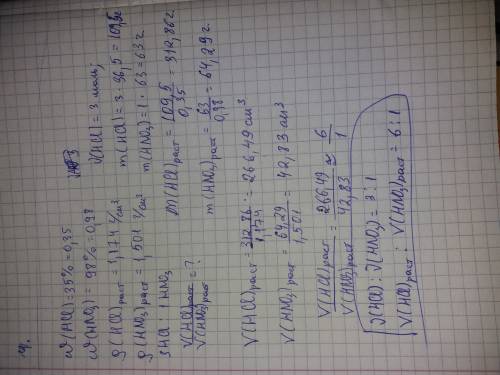 чт.
ω(HCl)=35%=0,35
ω(HNO₃) = 98% = 0,98
ρ(HCl)раст = 1,174 г/см³
ρ(HNO₃)раст = 1,501 г/см³
3HCl 1 HNO₃
V(HCl)раст / V(HNO₃)раст = ?
ν(HCl) = 3 моль;
m(HCl) = 3 · 36,5 = 109,5г
m(HNO₃) = 1 · 63 = 63 г
m(HCl)раст = 109,5 / 0,35 = 312,86г.
m(HNO₃)раст = 63 / 0,98 = 64,29г.
V(HCl)раст = 312,86 / 1,174 = 266,49 см³
V(HNO₃)раст = 64,29 / 1,501 = 42,83 см³
V(HCl)раст / V(HNO₃)раст = 266,49 / 42,83 ≈ 6 / 1
ν(HCl) : ν(HNO₃) = 3 : 1
V(HCl)раст : V(HNO₃)раст = 6 : 1